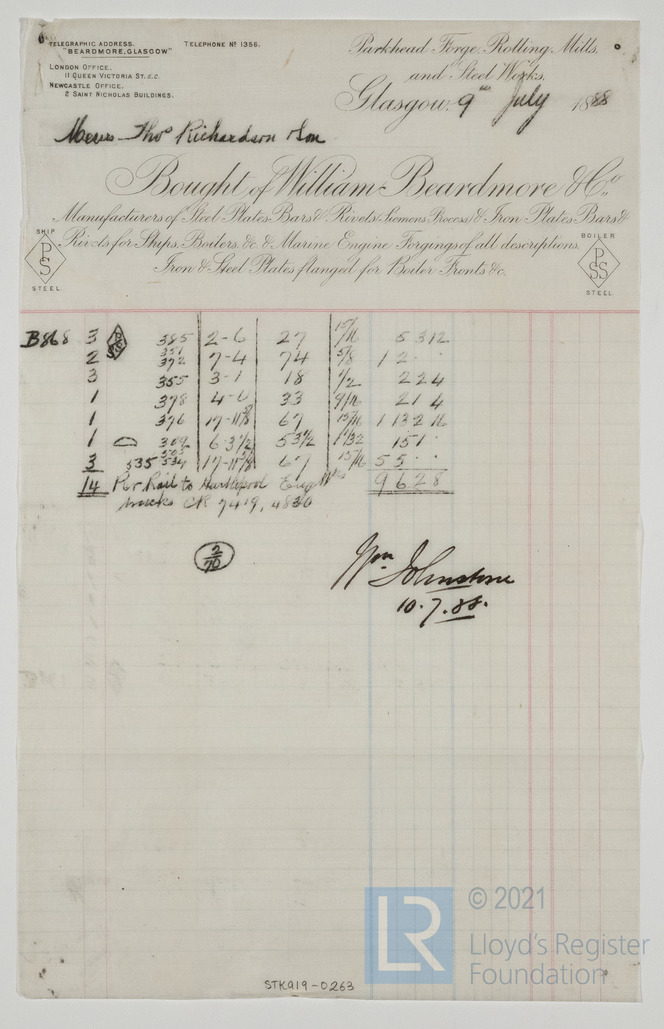 TELEGRAPHIC ADDRESS. TELEPHONE Nº 1356.
"BEARDMORE, GLASGOW"
LONDON OFFICE,
11 QUEEN VICTORIA ST. E.C.
NEWCASTLE OFFICE,
2 SAINT NICHOLAS BUILDINGS.
Parkhead Forge, Rolling Mills,
and Steel Works,
Glasgow, 9th July 1888
Messrs Thos Richardson & Son
Bought of William Beardmore & Co.,
Manufacturers of Steel Plates Bars & Rivets (Siemens Process) & Iron Plates Bars &
Rivets for Ships, Boilers, &c. & Marine Engine Forgings of all descriptions.
Iron & Steel Plates flanged for Boiler Fronts &c.
SHIP
PS
STEEL
BOILER
PSS
STEEL
B868 3 PSS 385 2-6 27 15/16 5 3 12
2 372 7-4 74 5/8 1 2 . .
3 355 3-1 18 1/2 2 2 4
1 378 4-0 33 9/16 2 1 4
1 376 17-11 5/8 67 15/16 1 13 2 16
1 309 6-3 1/2 53 1/2 1 1/32 15 1 .
3 535 534 17-11 5/8 67 15/16 5 5 . .
14 Per Rail to Hartlepool Engine Wks 9 6 2 8
trucks CR 7419, 4830
2/70
Wm Johnstone
10.7.88.
STK919-0263
LR
© 2021
Lloyd's Register
Foundation